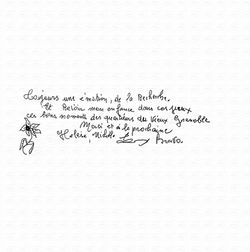 Toujours une émotion, de la Recherche.
Et Revoir mon enfance dans ces yeux
ces bons moments des quartiers du Vieux Grenoble
Merci et à la prochaine
Hélène, Michel